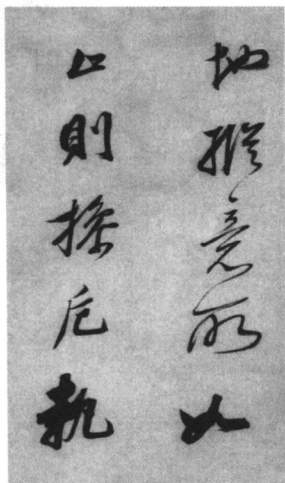 地縱意所如
止則操卮執